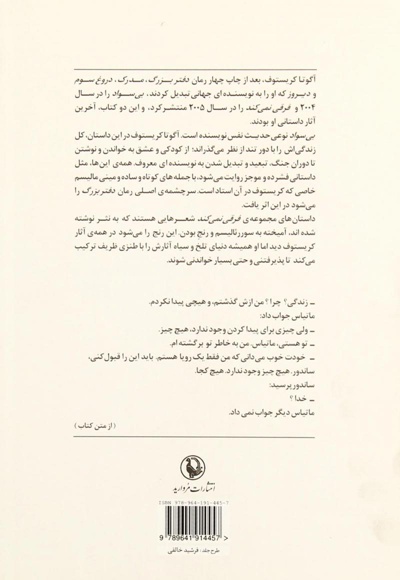 آگوتا کریستوف، بعد از چاپ چهار رمان دفتر بزرگ، مدرک، دروغ سوم
و دیروز که او را به نویسنده ای جهانی تبدیل کردند، بی‌سواد را در سال
۲۰۰۴ و فرقی نمی‌کند را در سال ۲۰۰۵ منتشر کرد، و این دو کتاب، آخرین
آثار داستانی او بودند.
بی‌سواد نوعی حدیث نفس نویسنده است. آگوتا کریستوف در این داستان، کل
زندگی‌اش را با دور تند از نظر می‌گذراند؛ از کودکی و عشق به خواندن و نوشتن
تا دوران جنگ، تبعید و تبدیل شدن به نویسنده ای معروف. همه‌ی این‌ها، مثل
داستانی فشرده و موجز روایت می‌شود، با جمله های کوتاه و ساده و مینی مالیسم
خاصی که کریستوف در آن استاد است. سرچشمه‌ی اصلی رمان دفتر بزرگ را
می‌شود در این اثر یافت.
داستان های مجموعه‌ی فرقی نمی‌کند شعرهایی هستند که به نثر نوشته
شده اند، آمیخته به سوررئالیسم و رنج بودن. این رنج را می‌شود در همه‌ی آثار
کریستوف دید اما او همیشه دنیای تلخ و سیاه آثارش را با طنزی ظریف ترکیب
می‌کند تا پذیرفتنی و حتی بسیار خواندنی شوند.
ـ زندگی؟ چرا؟ من ازش گذشتم، و هیچی پیدا نکردم.
ماتیاس جواب داد:
ـ ولی چیزی برای پیدا کردن وجود ندارد، هیچ چیز.
ـ تو هستی، ماتیاس. من به خاطر تو برگشته ام.
ـ خودت خوب می‌دانی که من فقط یک رویا هستم. باید این را قبول کنی،
ساندور. هیچ چیز وجود ندارد. هیچ کجا.
ساندور پرسید:
ـ خدا؟
ماتیاس دیگر جواب نمی داد.
( از متن کتاب )
انتشارات مروارید
ISBN 978-964-191-445-7
9 789641 914457 >
طرح جلد: فرشید خالقی